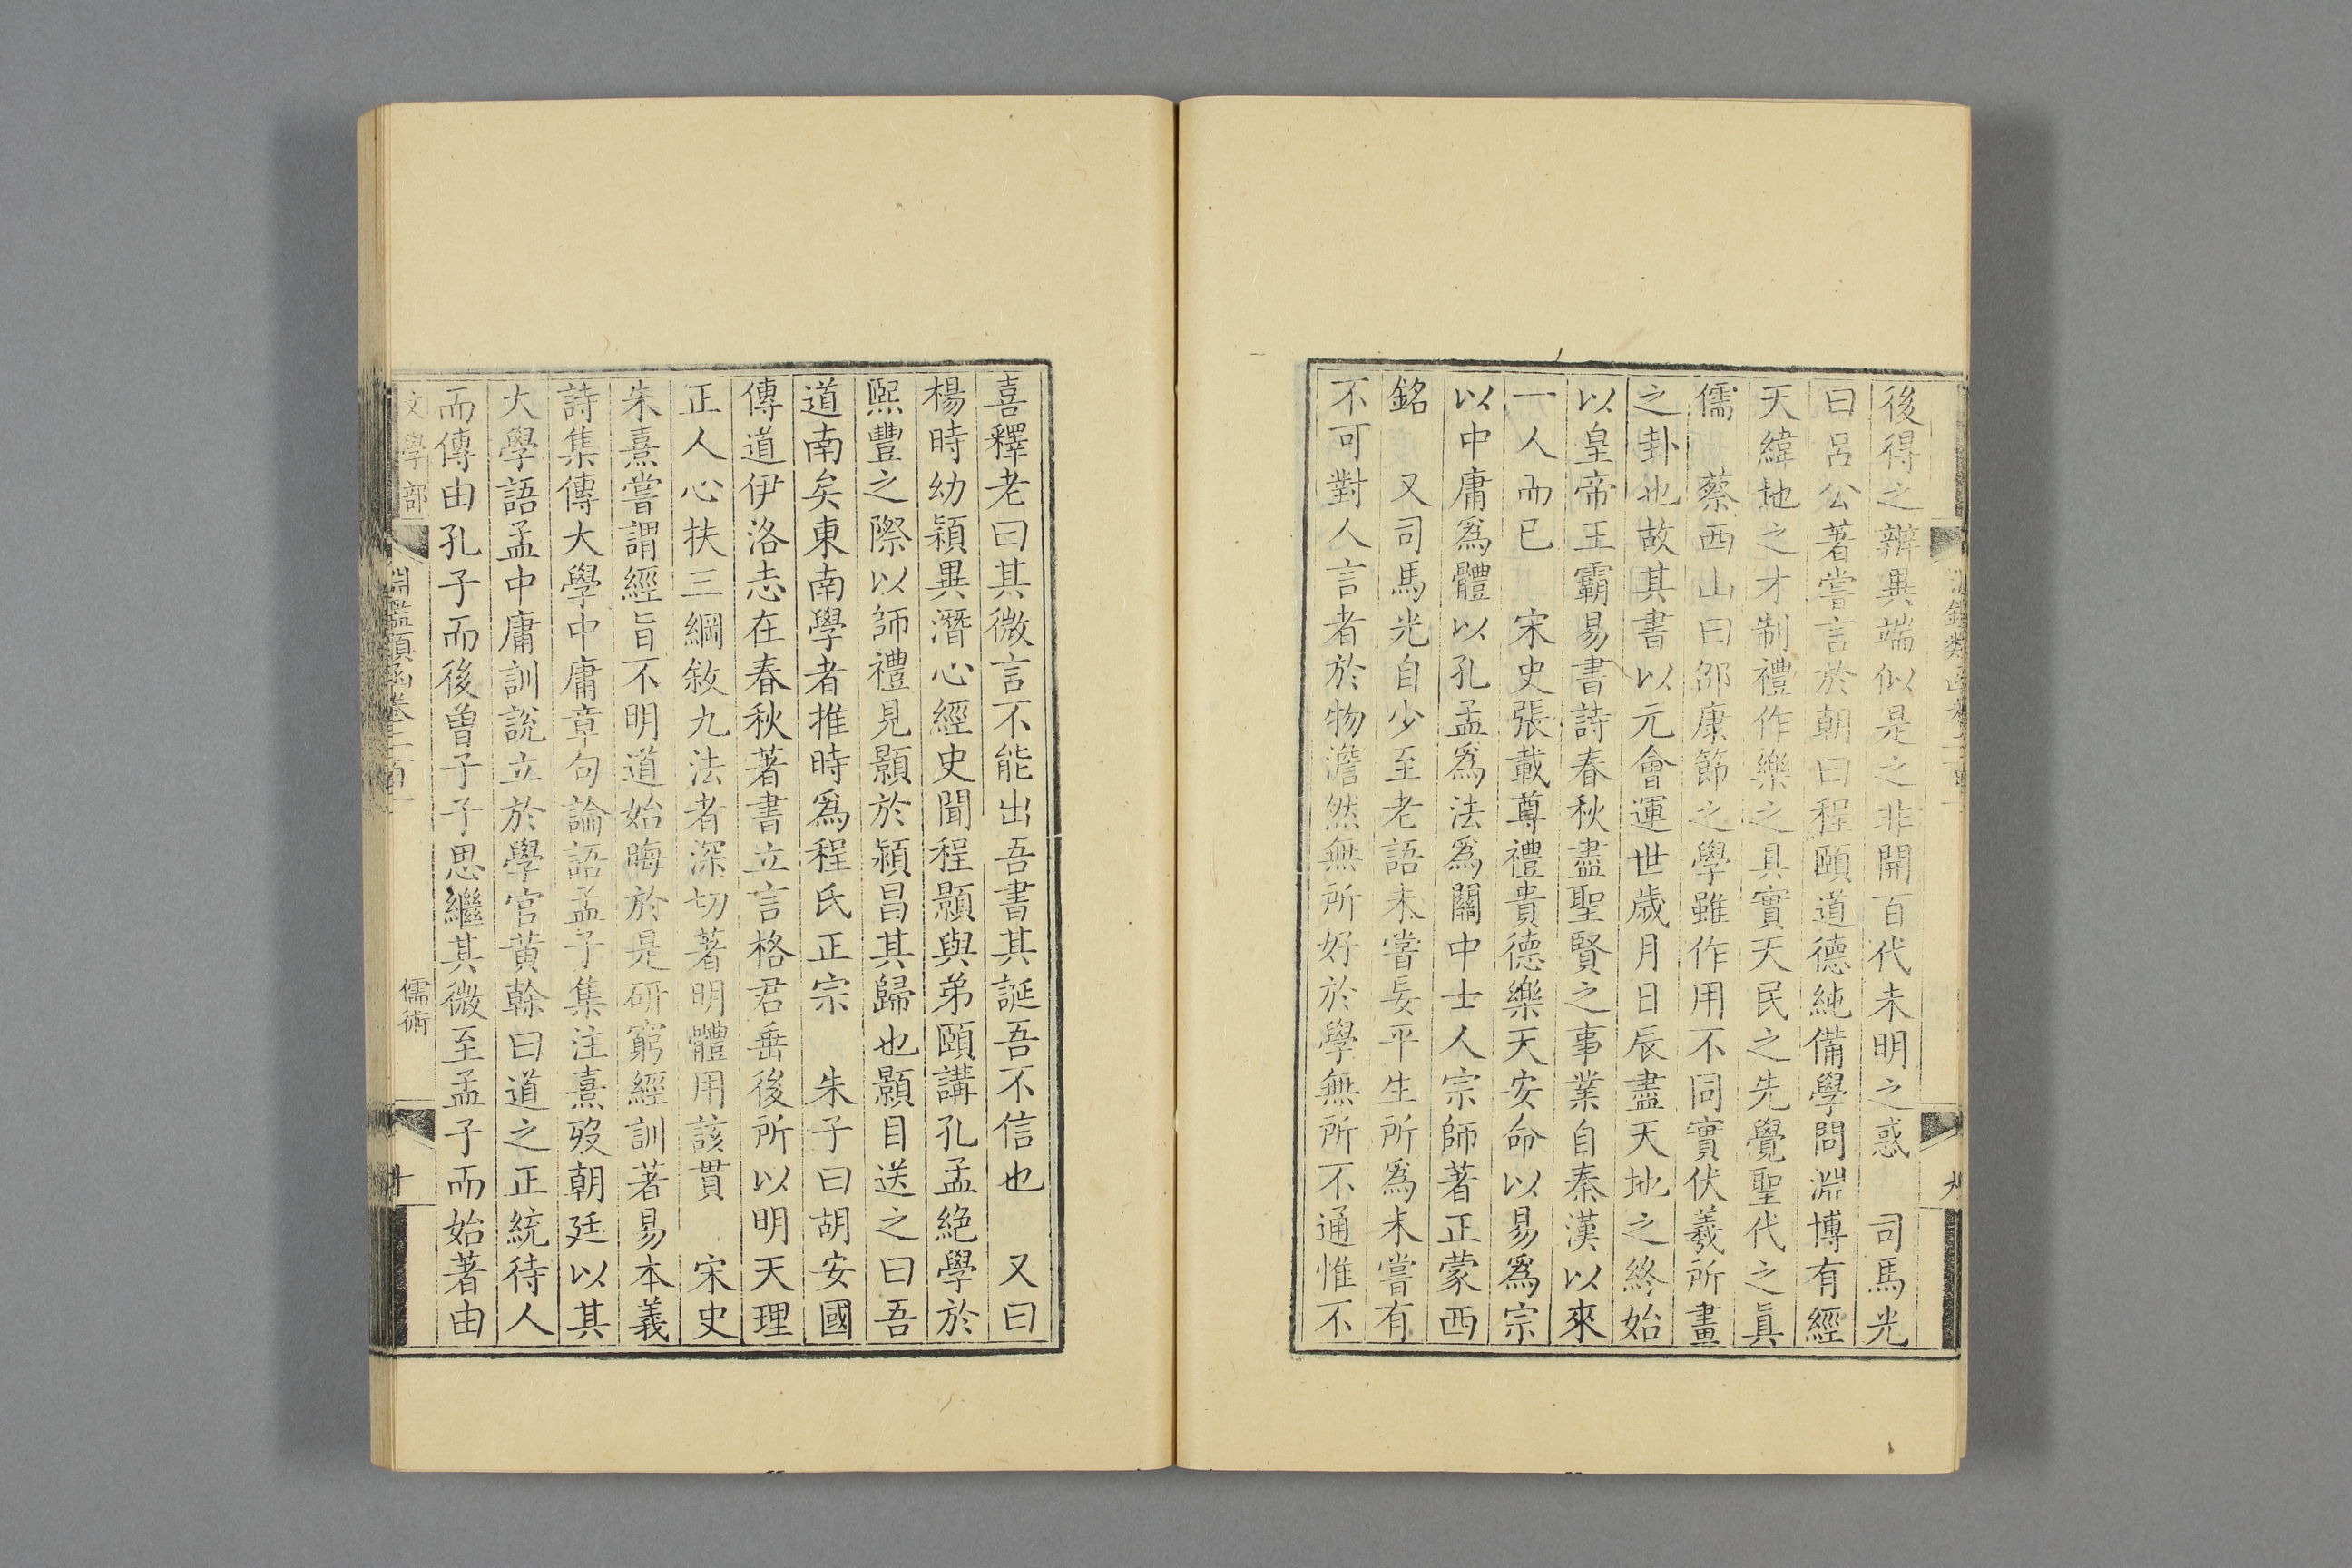 後得之辨異端似是之非開百代未明之惑　司馬光
曰呂公著嘗言於朝曰程頤道德純備學問淵博有經
天緯地之才制禮作樂之具實天民之先覺聖代之眞
儒　蔡西山曰邵康節之學雖作用不同實伏羲所畫
之卦也故其書以元會運世歲月日辰盡天地之終始
以皇帝王霸易書詩春秋盡聖賢之事業自秦漢以來
一人而已　宋史張載尊禮貴德樂天安命以易爲宗
以中庸爲體以孔孟爲法爲關中士人宗師著正蒙西
銘　又司馬光自少至老語未嘗妄平生所爲未嘗有
不可對人言者於物澹然無所好於學無所不通惟不
喜釋老曰其微言不能出吾書其誕吾不信也　又曰
楊時幼穎異潛心經史聞程顥與弟頤講孔孟絶學於
熙豐之際以師禮見顥於潁昌其歸也顥目送之曰吾
道南矣東南學者推時爲程氏正宗　朱子曰胡安國
傳道伊洛志在春秋著書立言格君垂後所以明天理
正人心扶三綱敘九法者深切著明體用該貫　宋史
朱熹嘗謂經旨不明道始晦於是研窮經訓著易本義
詩集傳大學中庸章句論語孟子集注熹歿朝廷以其
大學語孟中庸訓說立於學官黃榦曰道之正統待人
而傳由孔子而後曾子子思繼其微至孟子而始著由
文學部
淵鑑類函卷二百一
儒術
十